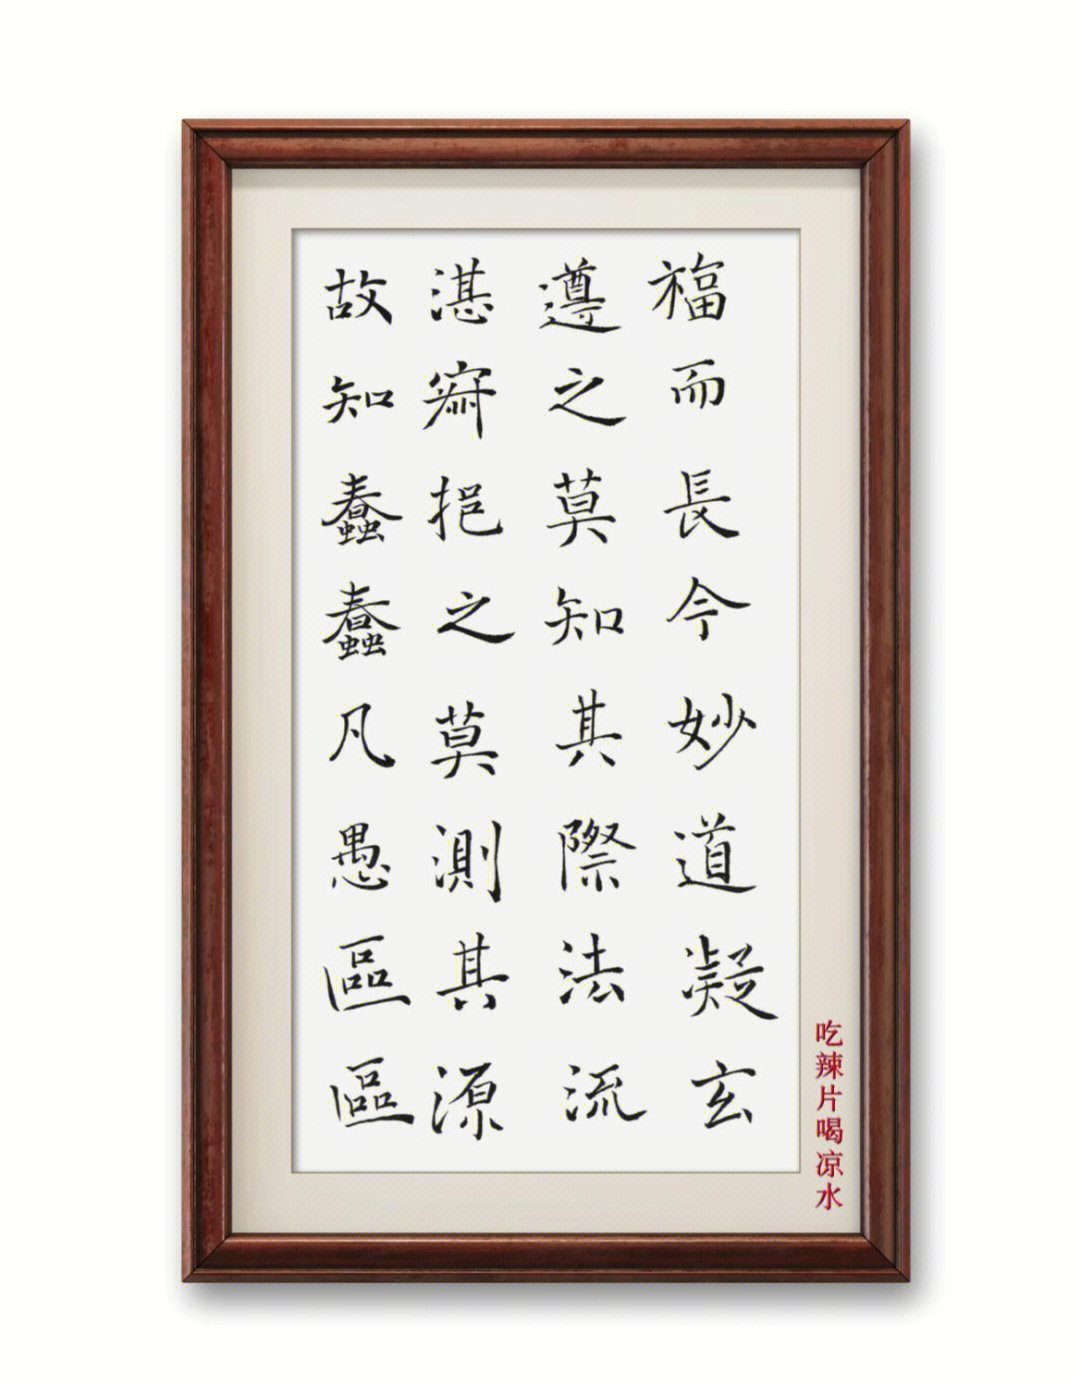 福而長今妙道凝玄
遵之莫知其際法流
湛寂挹之莫測其源
故知蠢蠢凡愚區區
吃辣片喝凉水